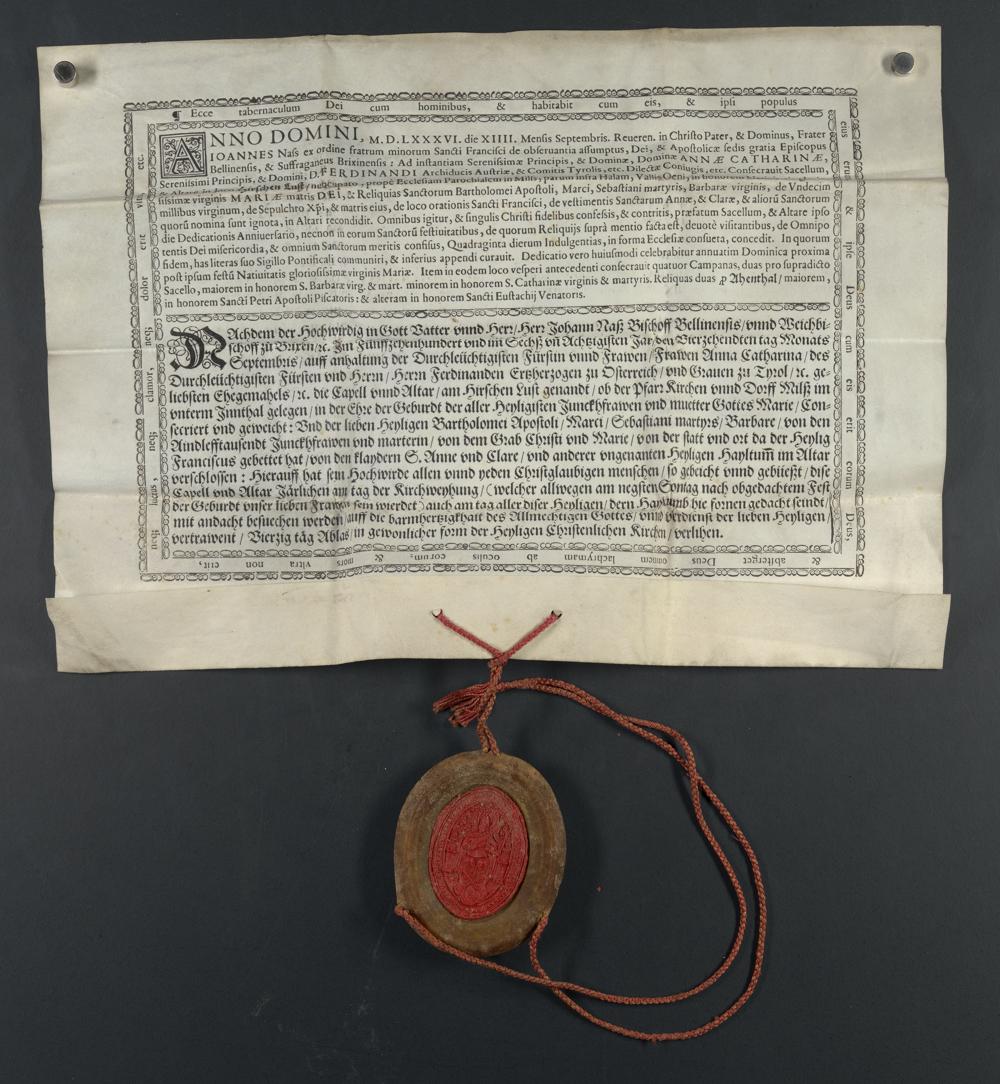 ¶ Ecce tabernaculum Dei cum hominibus, & habitabit cum eis, & ipsi populus
eius erūt & ipse Deus cum eis erit eorum Deus:
& absterget Deus omnem lachrymam ab oculis eorum, & mors vltra non erit,
neqꝫ luctus, neqꝫ clamor, neqꝫ dolor erit vltra etc.
ANNO DOMINI, M. D. LXXXVI. die XIIII. Mensis Septembris. Reueren. in Christo Pater, & Dominus, Frater
IOANNES Nass ex ordine fratrum minorum Sancti Francisci de obseruantia assumptus, Dei, & Apostolicæ sedis gratia Episcopus
Bellinensis, & Suffraganeus Brixinensis: Ad instantiam Serenissimæ Principis, & Dominæ, Dominæ ANNÆ CATHARINÆ,
Serenissimi Principis, & Domini, D. FERDINANDI Archiducis Austriæ, & Comitis Tyrolis, etc. Dilectæ Coniugis, etc. Consecrauit Sacellum,
& Altare in loco Hirschen Lust / nuncupato, prope Ecclesiam Parochialem in Mills, parum infra Halam, Vallis Oeni, in honorem
sissimæ virginis MARIÆ matris DEI, & Reliquias Sanctorum Bartholomei Apostoli, Marci, Sebastiani martyris, Barbaræ virginis, de Vndecim
millibus virginum, de Sepulchro Xp̄i, & matris eius, de loco orationis Sancti Francisci, de vestimentis Sanctarum Annæ, & Claræ, & aliorū Sanctorum
quorū nomina sunt ignota, in Altari recondidit. Omnibus igitur, & singulis Christi fidelibus confessis, & contritis, præfatum Sacellum, & Altare ipso
die Dedicationis Anniuersario, necnon in eorum Sanctorū festiuitatibus, de quorum Reliquijs suprà mentio facta est, deuotè visitantibus, de Omnipo
tentis Dei misericordia, & omnium Sanctorum meritis confisus, Quadraginta dierum Indulgentias, in forma Ecclesiæ consueta, concedit. In quorum
fidem, has literas suo Sigillo Pontificali communiri, & inferius appendi curauit. Dedicatio vero huiusmodi celebrabitur annuatim Dominica proxima
post ipsum festū Natiuitatis gloriosissimæ virginis Mariæ. Item in eodem loco vesperi antecedenti consecrauit quatuor Campanas, duas pro supradicto
Sacello, maiorem in honorem S. Barbaræ virg. & mart. minorem in honorem S. Catharinæ virginis & martyris. Reliquas duas ꝓ Ahenthal / maiorem,
in honorem Sancti Petri Apostoli Piscatoris: & alteram in honorem Sancti Eustachij Venatoris.
NAchdem der Hochwirdig in Gott Vatter vnnd Herr / Herr Johann Naß Bischoff Bellinensis / vnnd Weichbi-
schoff zů Brixen / ꝛc. Im Fünffzehenhundert vnd im Sechß vn̄ Achtzigisten Jar / den Vierzehendten tag Monats
Septembris / auff anhaltung der Durchleüchtigisten Fürstin vnnd Frawen / Frawen Anna Catharina / des
Durchleüchtigisten Fürsten vnd Herrn / Herrn Ferdinanden Ertzherzogen zu Osterreich / vnd Grauen zu Tyrol / ꝛc. ge-
liebsten Ehegemahels / ꝛc. die Capell vnnd Altar / am Hirschen Lust genandt / ob der Pfarr Kirchen vnnd Dorff Milß im
vnterm Jnnthal gelegen / in der Ehr der Geburdt der aller Heyligisten Junckhfrawen vnd muetter Gottes Marie / Con-
secriert vnd geweicht: Vnd der lieben Heyligen Bartholomei Apostoli / Marci / Sebastiani martyrs / Barbare / von den
Aindlefftausendt Junckhfrawen vnd marterin / von dem Grab Christi vnd Marie / von der statt vnd ort da der Heylig
Franciscus gebettet hat / von den klaydern S. Anne vnd Clare / vnd anderer vngenanten Heyligen Hayltum̄ im Altar
verschlossen: Hierauff hat sein Hochwirde allen vnnd yeden Christglaubigen menschen / so gebeicht vnnd gebüeßt / dise
Capell vnd Altar Järlichen am tag der Kirchweyhung / (welcher allwegen am negsten Sontag nach obgedachtem Fest
der Geburdt vnser lieben Frawen sein wierdet) auch am tag aller diser Heyligen / dern Hayltumb hie fornen gedacht seindt /
mit andacht besuechen werden / auff die barmhertzigkhait des Allmechtigen Gottes / vnnd verdienst der lieben Heyligen /
vertrawent / Vierzig täg Ablas / in gewonlicher form der Heyligen Christenlichen Kirchen / verlihen.